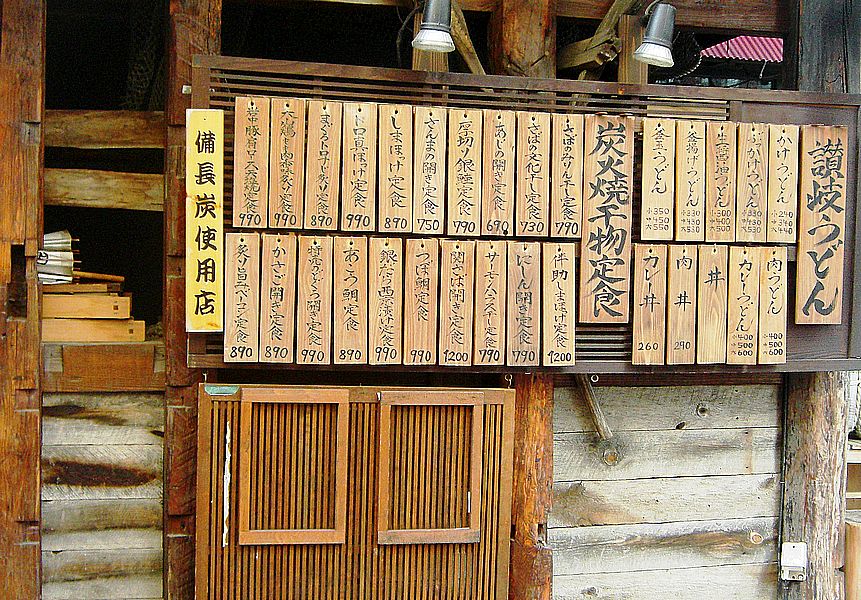 讃岐うどん
かけうどん 小240 中340 大440
ぶっかけうどん 小330 中430 大530
生醤油うどん 小300 中400 大500
釜揚げうどん 小330 中430 大530
釜玉うどん 小350 中450 大550
肉うどん 小400 中500 大600
カレーうどん 小400 中500 大600
丼
肉丼 290
カレー丼 260
炭火焼干物定食
さばのみりん干し定食 790
さばの文化干し定食 730
あじの開き定食 690
厚切り銀鮭定食 790
さんまの開き定食 750
しまほっけ定食 890
トロ真ほっけ定食 990
まぐろトロカジキ炙り定食 890
990
990
伴助しまほっけ定食 1200
にしん開き定食 790
サーモンハラス干し定食 790
関さば開き定食 1200
つぼ鯛定食 990
銀だら黒漬け定食 990
あこう鯛定食 890
990
かさご開き定食 890
炙り旨みベーコン定食 890
備長炭使用店